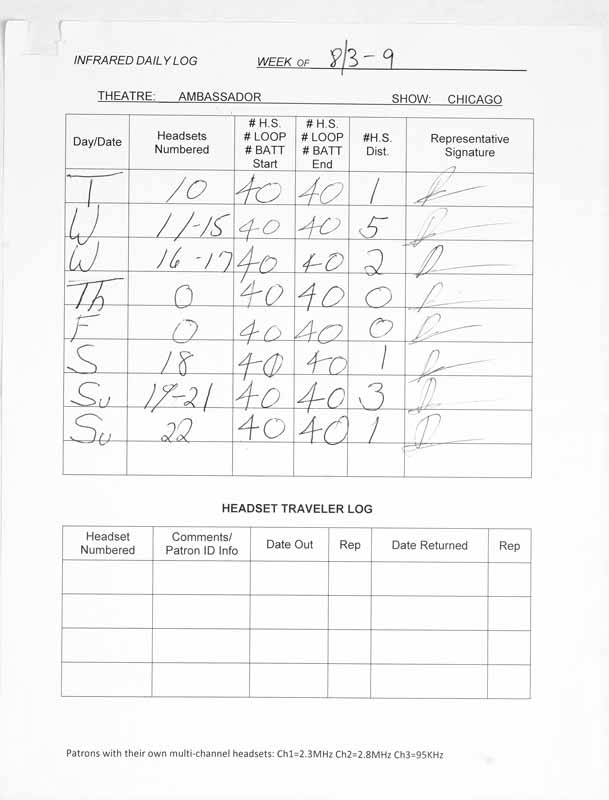 INFRARED DAILY LOG WEEK OF 8/3-9
THEATRE: AMBASSADOR SHOW: CHICAGO
Day/Date Headsets Numbered # H.S. # LOOP # BATT Start # H.S. # LOOP # BATT End #H.S. Dist. Representative Signature
T 10 40 40 1
W 11-15 40 40 5
W 16-17 40 40 2
Th 0 40 40 0
F 0 40 40 0
S 18 40 40 1
Su 19-21 40 40 3
Su 22 40 40 1
HEADSET TRAVELER LOG
Headset Numbered Comments/ Patron ID Info Date Out Rep Date Returned Rep
Patrons with their own multi-channel headsets: Ch1=2.3MHz Ch2=2.8MHz Ch3=95KHz